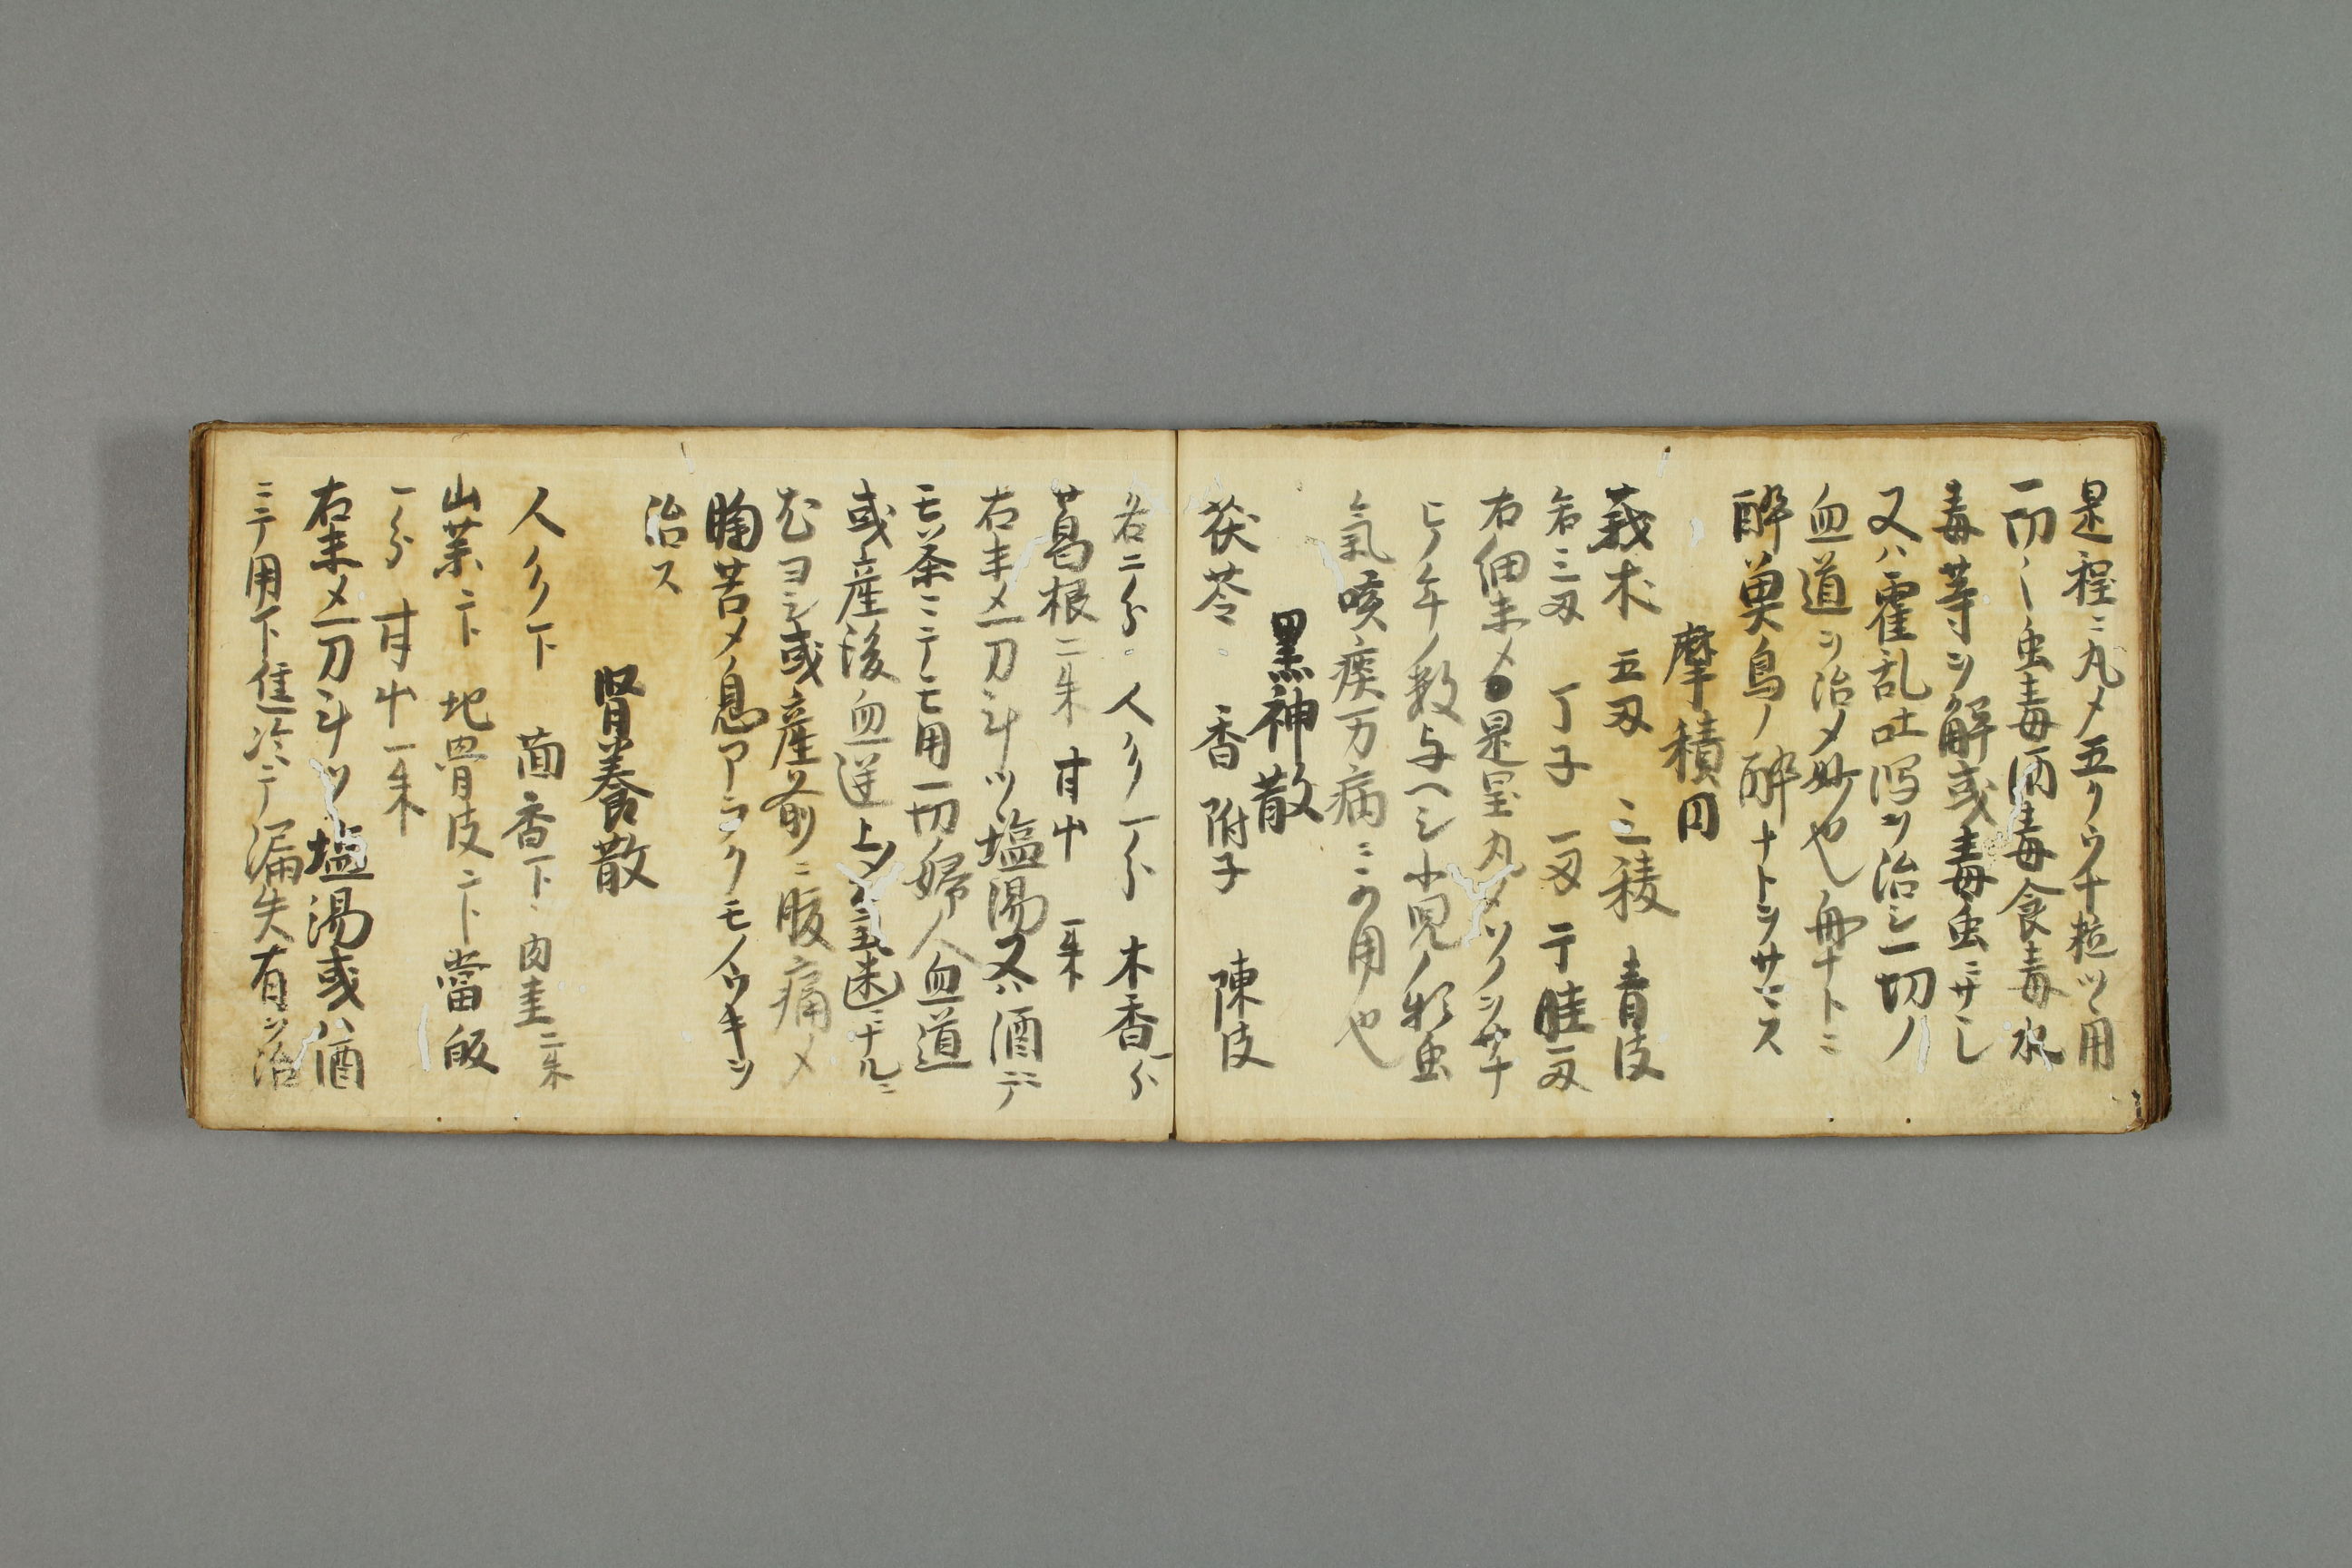 是程ニ丸メ五クウ十粒ツヽ用
一切ノ虫毒酒毒食毒水
毒等ヲ解或毒虫ニサシ
又ハ霍乱吐瀉ヲ治シ一切ノ
血道ヲ治メ妙也舟ナトニ
酔魚鳥ノ酔ナトヲサマス
摩積円
莪朮 五匁 三稜 青皮
各三匁 丁子 一匁
右細末メ●是呈丸メソノ
ヒノ年ノ数与ヘシ小児ノ虫
氣咳痰万病ニ可用也
黒神散
茯苓 香附子 陳皮
各二分 人参一分 木香一分
葛根二朱 甘中 一朱
右末メ一刀斗ツヽ塩湯又ハ酒ニテ
モ茶ニテモ用一切婦人血道
或産後血逆上メ
ヨシ或産前ニ腹痛メ
胸苦メ息アラクモノウキヲ
治ス
腎養散
人参下 茴香下 肉圭二朱
山薬二下 地骨皮二下 當皈
一分 甘中一朱
右末メ一刀斗ツヽ塩湯或ハ酒
ニテ用下焦冷テ漏失有ヲ治